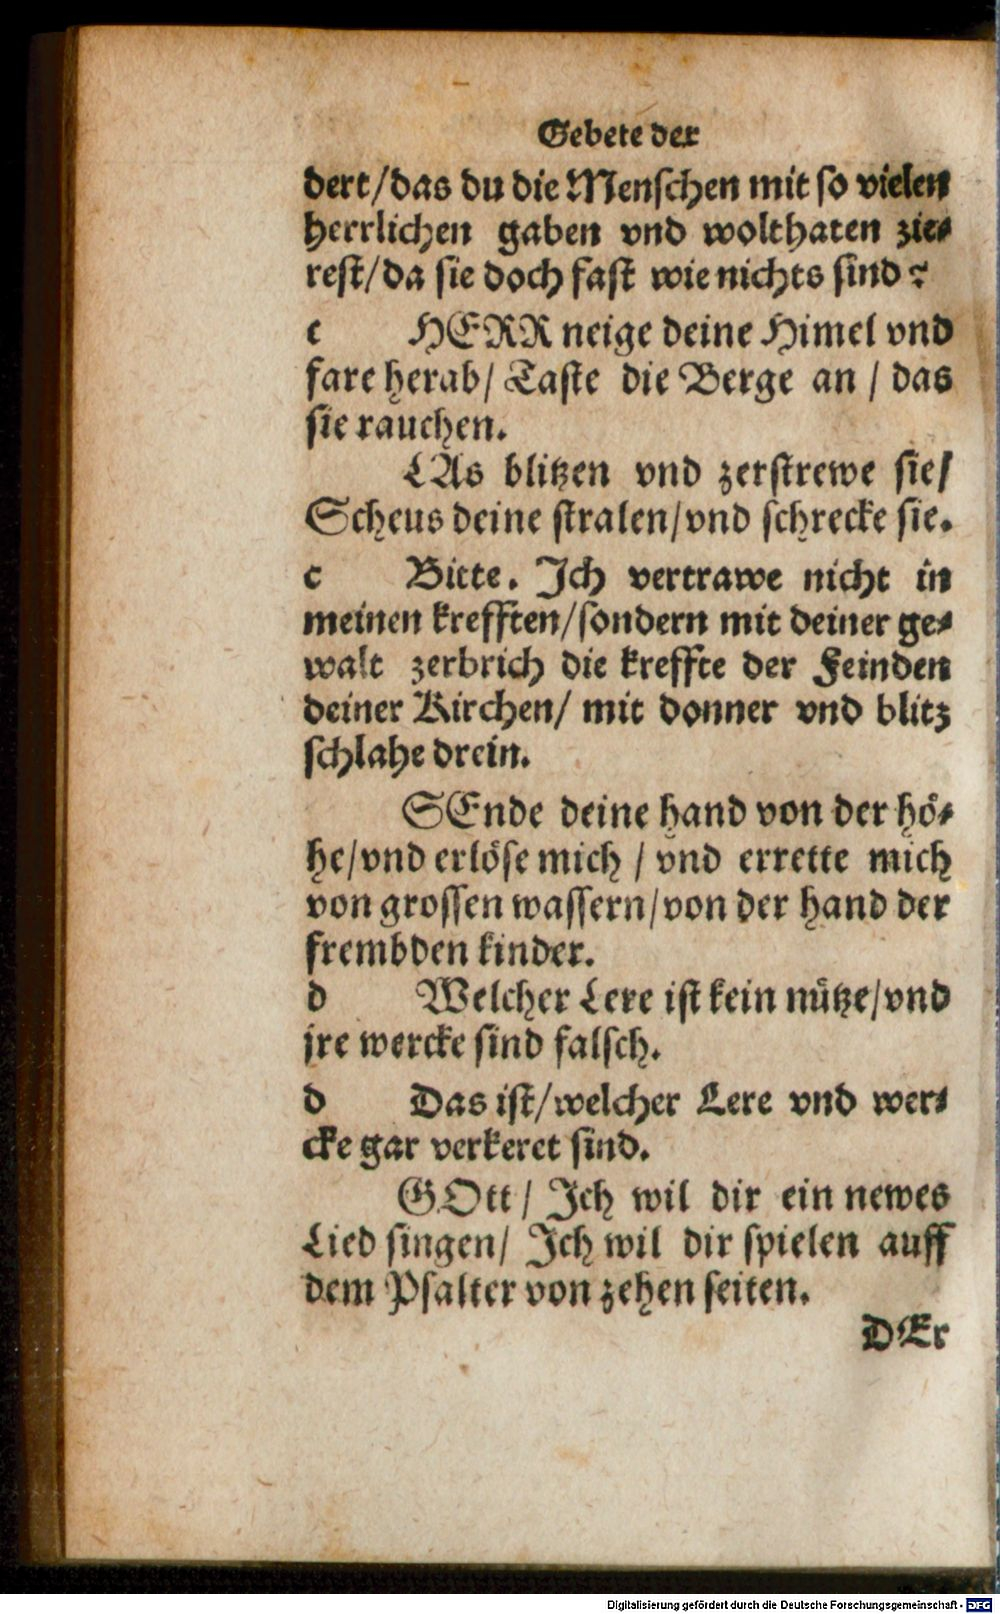 Gebete der
dert/das du die Menschen mit so vielen
herrlichen gaben vnd wolthaten zie-
rest/da sie doch fast wie nichts sind?
c HERR neige deine Himel vnd
fare herab/ Taste die Berge an / das
sie rauchen.
LAs blitzen vnd zerstrewe sie/
Scheus deine stralen/vnd schrecke sie.
c Bitte. Ich vertrawe nicht in
meinen krefften/sondern mit deiner ge-
walt zerbrich die kreffte der Feinden
deiner Kirchen/ mit donner vnd blitz
schlahe drein.
SEnde deine hand von der hö-
he/vnd erlöse mich / vnd errette mich
von grossen wassern/von der hand der
frembden kinder.
d Welcher Lere ist kein nütze/vnd
jre wercke sind falsch.
d Das ist/welcher Lere vnd wer-
cke gar verkeret sind.
GOtt/ Ich wil dir ein newes
Lied singen/ Ich wil dir spielen auff
dem Psalter von zehen seiten.
DEr
Digitalisierung gefördert durch die Deutsche Forschungsgemeinschaft - DFG